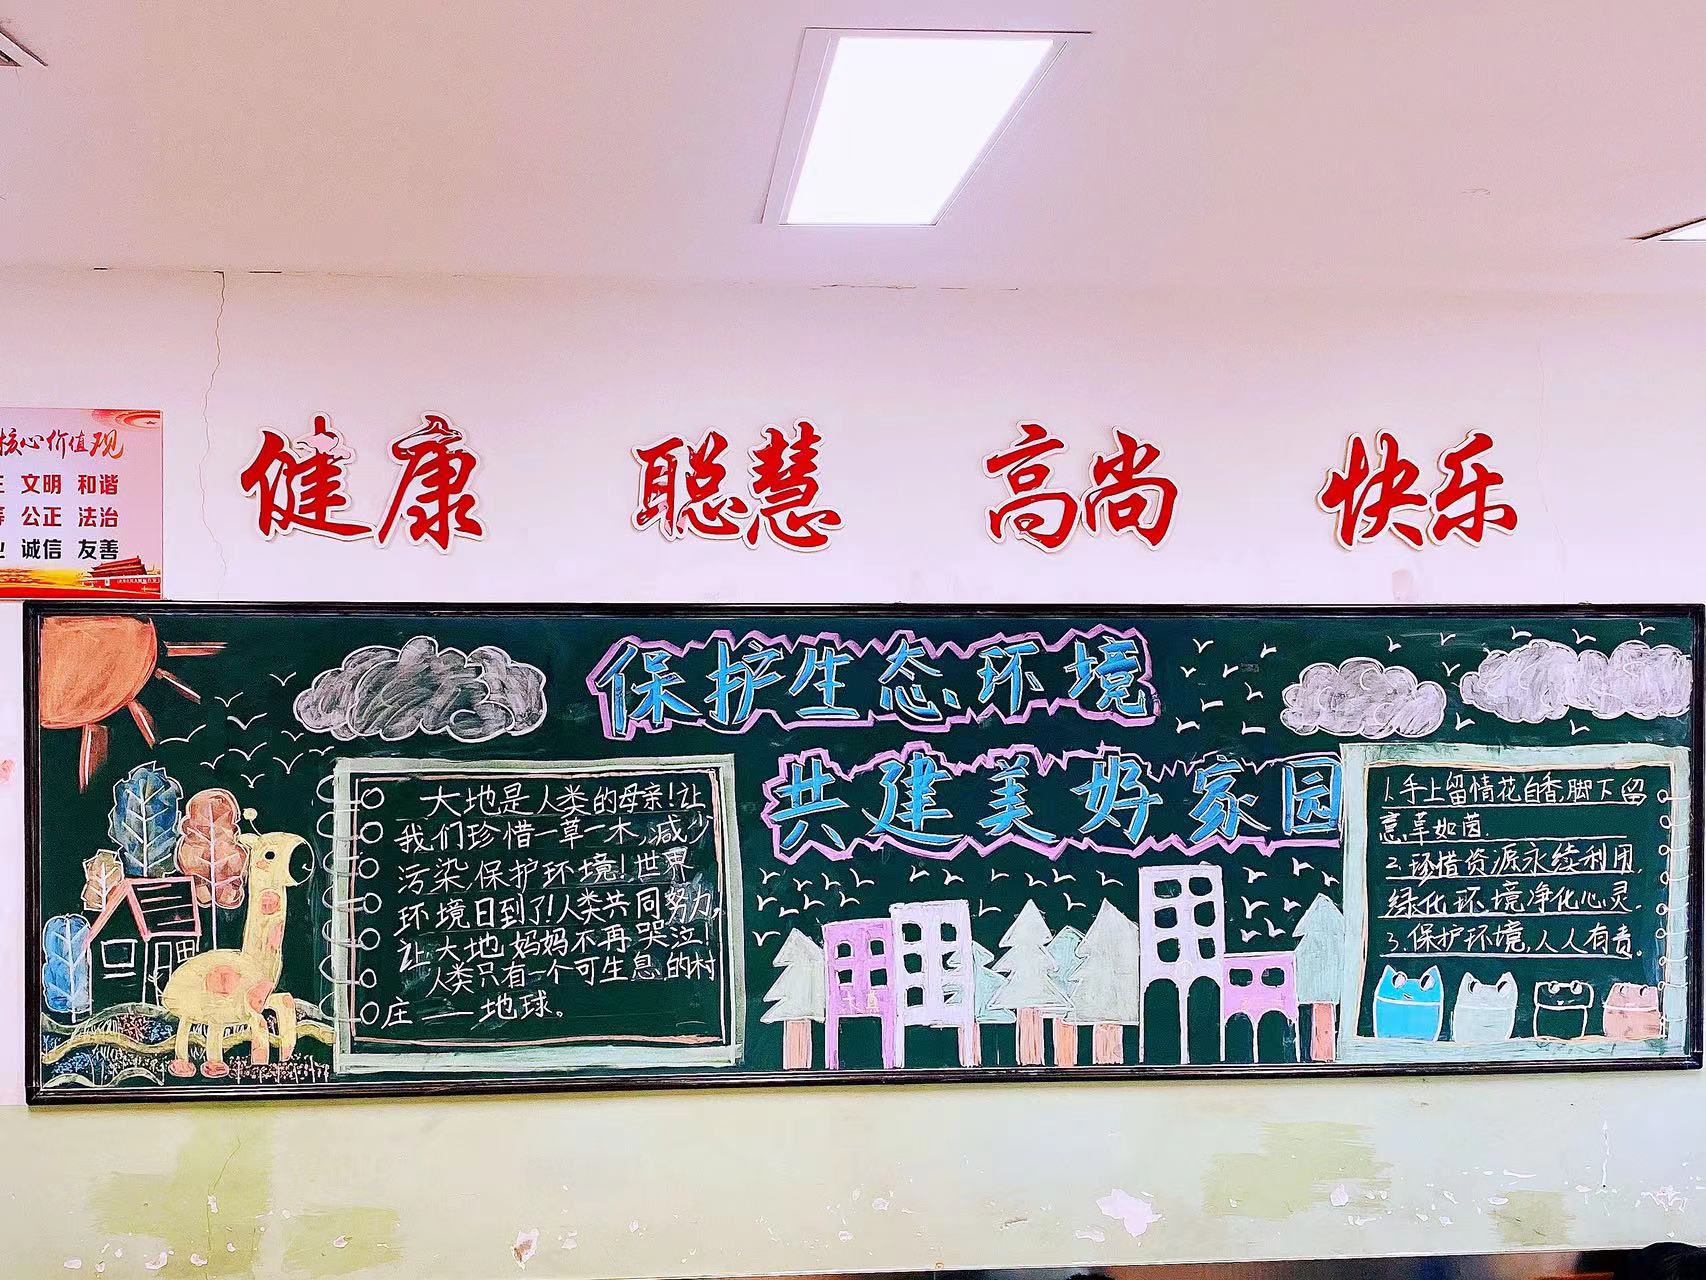 健康 聪慧 高尚 快乐
核心价值观
文明 和谐
公正 法治
诚信 友善
保护生态环境
共建美好家园
大地是人类的母亲!让
我们珍惜一草一木,减少
污染,保护环境!世界
环境日到了!人类共同努力,
让大地妈妈不再哭泣
人类只有一个可生息的村
庄——地球。
1.手上留情花自香,脚下留
意草如茵.
2.珍惜资源永续利用,
绿化环境净化心灵.
3.保护环境,人人有责.